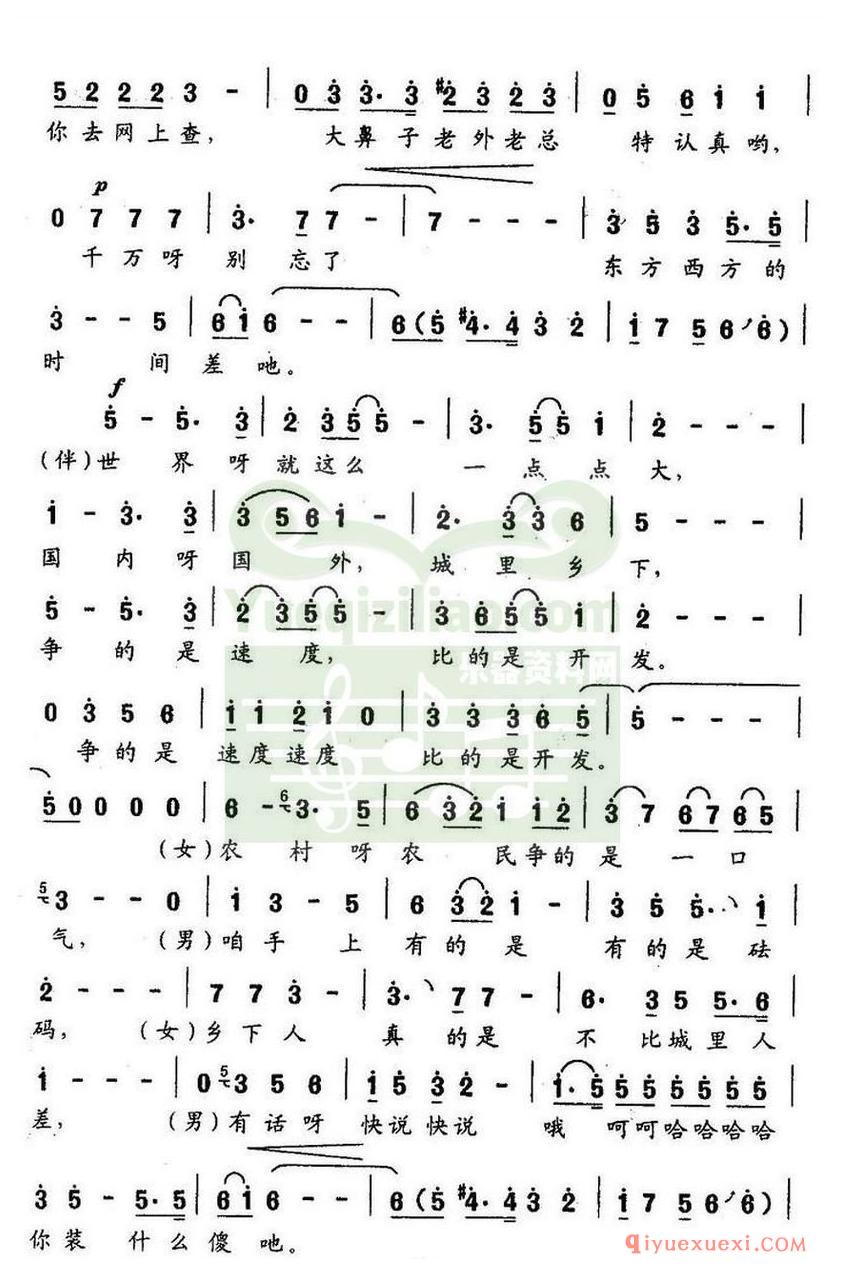 5 2 2 2 2 3 - | 0 3 3· 3 #2 3 2 3 | 0 5 6 i i |
你去网上查, 大鼻子老外老总 特认真哟,
p
0 7 7 7 | 3· 7 7 - | 7 - - - | 3 5 3 5· 5 |
千万呀别忘了 东方西方的
3 - - 5 | 6 i 6 - - | 6 (5 #4· 4 3 2 | i 7 5 6 6) |
时间差吔。
f
5 - 5· 3 | 2 3 5 5 - | 3· 5 5 i | 2 - - - |
(伴)世界呀就这么 一点点大,
i - 3· 3 | 3 5 6 i - | 2· 3 3 6 | 5 - - - |
国内呀国外, 城里乡下,
5 - 5· 3 | 2 3 5 5 - | 3 6 5 5 i | 2 - - - |
争的是速度, 比的是开发。
0 3 5 6 | i i 2 i 0 | 3 3 3 6 5 | 5 - - - |
争的是速度速度 比的是开发。
5 0 0 0 0 | 6 - 6 3· 5 | 6 3 2 i i 2 | 3 7 6 7 6 5 |
(女)农村呀农民争的是一口
5 3 - - 0 | i 3 - 5 | 6 3 2 i - | 3 5 5· i |
气, (男)咱手上有的是 有的是砝
2 - - - | 7 7 3 - | 3· 7 7 - | 6· 3 5 5· 6 |
码, (女)乡下人 真的是 不比城里人
i - - - | 0 5 3 5 6 | i 5 3 2 - | i· 5 5 5 5 5 5 5 |
差, (男)有话呀快说快说 哦呵呵哈哈哈哈
3 5 - 5· 5 | 6 i 6 - - | 6 (5 #4· 4 3 2 | i 7 5 6 6) |
你装什么傻吔。
Yueqiziliao.com
乐器资料网
qiyuexuexi.com